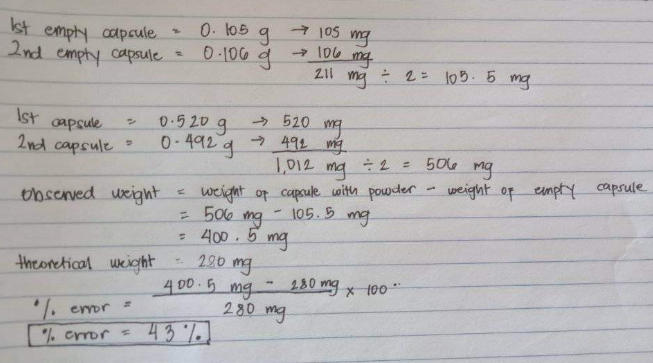 1st empty capsule = 0.105 g → 105 mg
2nd empty capsule = 0.106 g → 106 mg
211 mg ÷ 2 = 105.5 mg
1st capsule = 0.520 g → 520 mg
2nd capsule = 0.492 g → 492 mg
1,012 mg ÷ 2 = 506 mg
observed weight = weight of capsule with powder - weight of empty capsule
= 506 mg - 105.5 mg
= 400.5 mg
theoretical weight = 280 mg
% error = 400.5 mg - 280 mg × 100
280 mg
% error = 43%